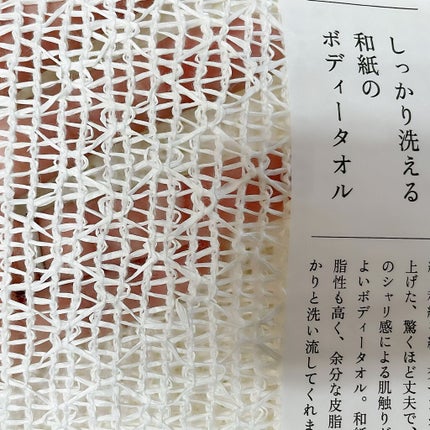 しっかり洗える
和紙の
ボディータオル
上げた、驚くほど丈夫で、
のシャリ感による肌触りが
よいボディータオル。和紙
脂性も高く、余分な皮脂
かりと洗い流してくれま